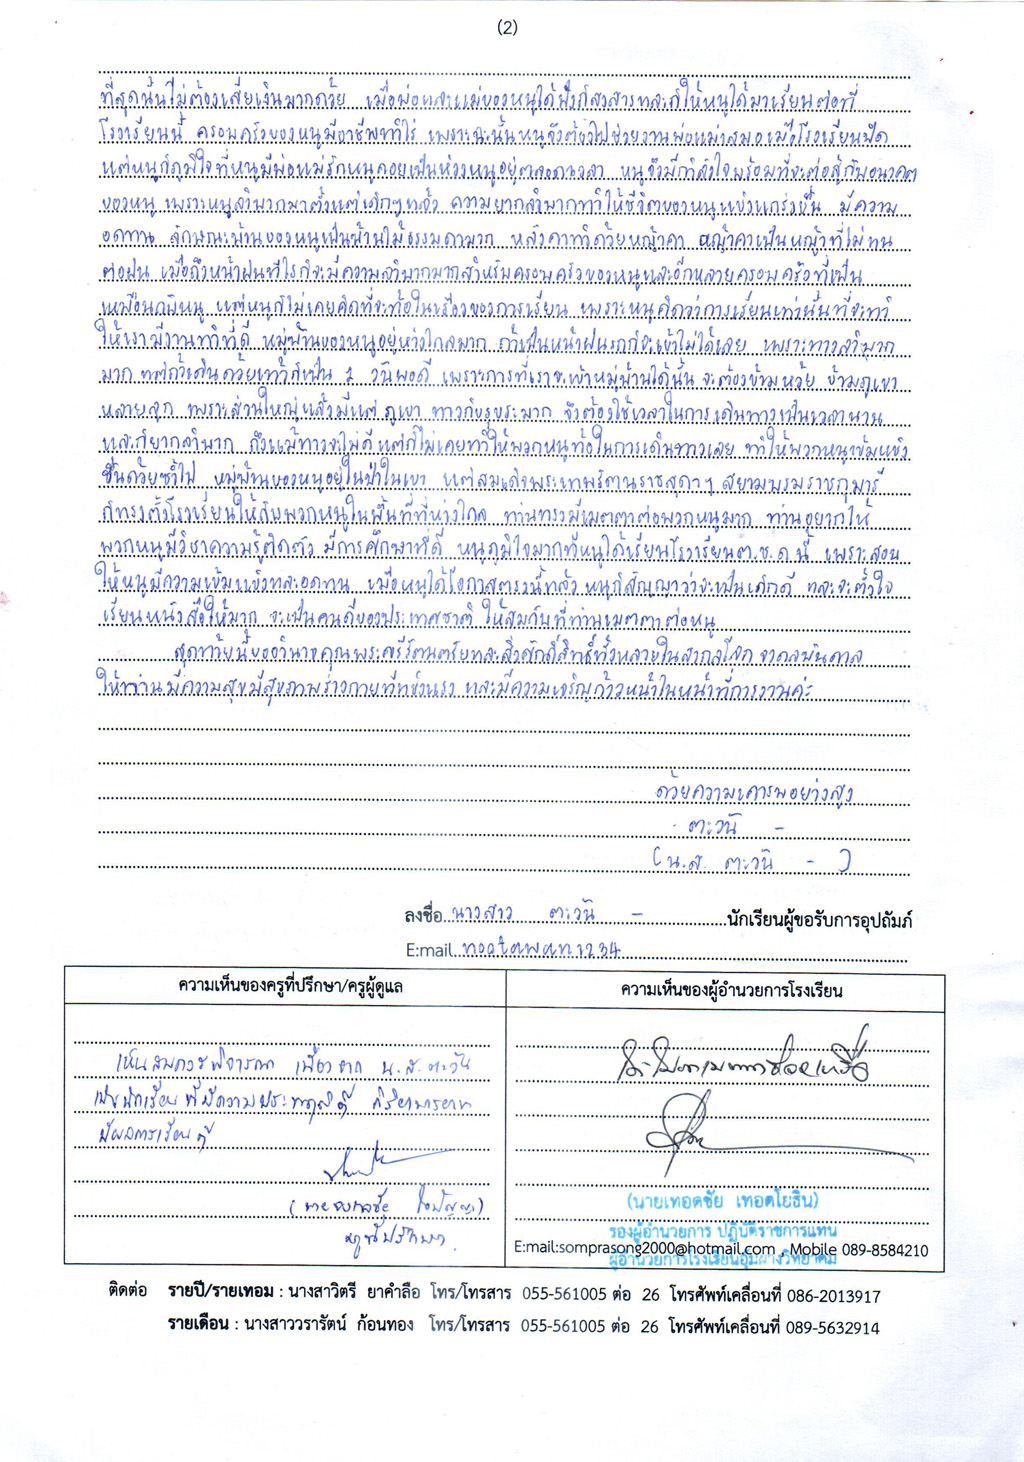 (2)
ที่สุดนั้นไม่ต้องเสียเงินมากด้วย เมื่อพ่อและแม่ของหนูได้ฟังก็สงสารและก็ให้หนูได้มาเรียนต่อที่
โรงเรียนนี้ ครอบครัวของหนูมีอาชีพทำไร่ เพราะฉะนั้นหนูจึงต้องไปช่วยงานพ่อแม่เสมอเมื่อโรงเรียนปิด
แต่หนูก็ภูมิใจที่หนูมีพ่อแม่รักหนูคอยเป็นห่วงหนูอยู่ตลอดเวลา หนูจึงมีกำลังใจพร้อมที่จะต่อสู้กับอนาคต
ของหนู เพราะหนูลำบากมาตั้งแต่เด็กๆแล้ว ความยากลำบากทำให้ชีวิตของหนูแข็งแกร่งขึ้น มีความ
อดทน ลักษณะบ้านของหนูเป็นบ้านไม้ธรรมดามาก หลังคาทำด้วยหญ้าคา หญ้าคาเป็นหญ้าที่ไม่ทน
ต่อฝน เมื่อถึงหน้าฝนทีไรก็จะมีความลำบากมากสำหรับครอบครัวของหนูและอีกหลายครอบครัวที่เป็น
เหมือนกับหนู แต่หนูก็ไม่เคยคิดที่จะท้อในเรื่องของการเรียน เพราะหนูคิดว่าการเรียนเท่านั้นที่จะทำ
ให้เรามีงานทำที่ดี หมู่บ้านของหนูอยู่ห่างไกลมาก ถ้าเป็นหน้าฝนรถก็จะเข้าไม่ได้เลย เพราะทางลำบาก
มาก แต่ถ้าเดินด้วยเท้าก็เป็น 2 วันพอดี เพราะการที่เราจะเข้าหมู่บ้านได้นั้น จะต้องข้ามห้วย ข้ามภูเขา
หลายลูก เพราะส่วนใหญ่แล้วมีแต่ภูเขา ทางก็ขรุขระมาก จึงต้องใช้เวลาในการเดินทางเป็นเวลานาน
และก็ยากลำบาก ถึงแม้ทางจะไม่ดีแต่ก็ไม่เคยทำให้พวกหนูท้อในการเดินทางเลย ทำให้พวกหนูเข้มแข็ง
ขึ้นด้วยซ้ำไป หมู่บ้านของหนูอยู่ในป่าในเขา แต่สมเด็จพระเทพรัตนราชสุดาฯ สยามบรมราชกุมารี
ก็ทรงตั้งโรงเรียนให้กับพวกหนูในพื้นที่ที่ห่างไกล ท่านทรงมีเมตตาต่อพวกหนูมาก ท่านอยากให้
พวกหนูมีวิชาความรู้ติดตัว มีการศึกษาที่ดี หนูภูมิใจมากที่หนูได้เรียนโรงเรียนต.ช.ด.นี้ เพราะสอน
ให้หนูมีความเข้มแข็งและอดทน เมื่อหนูได้โอกาสตรงนี้แล้ว หนูก็สัญญาว่าจะเป็นเด็กดี และจะตั้งใจ
เรียนหนังสือให้มาก จะเป็นคนดีของประเทศชาติ ให้สมกับที่ท่านเมตตาต่อหนู
สุดท้ายนี้ขออำนาจคุณพระศรีรัตนตรัยและสิ่งศักดิ์สิทธิ์ทั้งหลายในสากลโลก จงดลบันดาล
ให้ท่านมีความสุขมีสุขภาพร่างกายที่แข็งแรง และมีความเจริญก้าวหน้าในหน้าที่การงานค่ะ
ด้วยความเคารพอย่างสูง
ตะวัน -
(น.ส. ตะวัน - )
ลงชื่อ นางสาว ตะวัน - นักเรียนผู้ขอรับการอุปถัมภ์
E:mail nootawan1234
ความเห็นของครูที่ปรึกษา/ครูผู้ดูแล
เห็นสมควรพิจารณา เนื่องจาก น.ส.ตะวัน
เป็นนักเรียนที่มีความประพฤติดี กิริยามารยาท
มีผลการเรียนดี
ครูที่ปรึกษา
ความเห็นของผู้อำนวยการโรงเรียน
(นายเทอดชัย เทอดโยธิน)
รองผู้อำนวยการ ปฏิบัติราชการแทน
ผู้อำนวยการโรงเรียนอุ้มผางวิทยาคม
E:mail:somprasong2000@hotmail.com , Mobile 089-8584210
ติดต่อ รายปี/รายเทอม : นางสาวิตรี ยาคำลือ โทร/โทรสาร 055-561005 ต่อ 26 โทรศัพท์เคลื่อนที่ 086-2013917
รายเดือน : นางสาววรารัตน์ ก้อนทอง โทร/โทรสาร 055-561005 ต่อ 26 โทรศัพท์เคลื่อนที่ 089-5632914